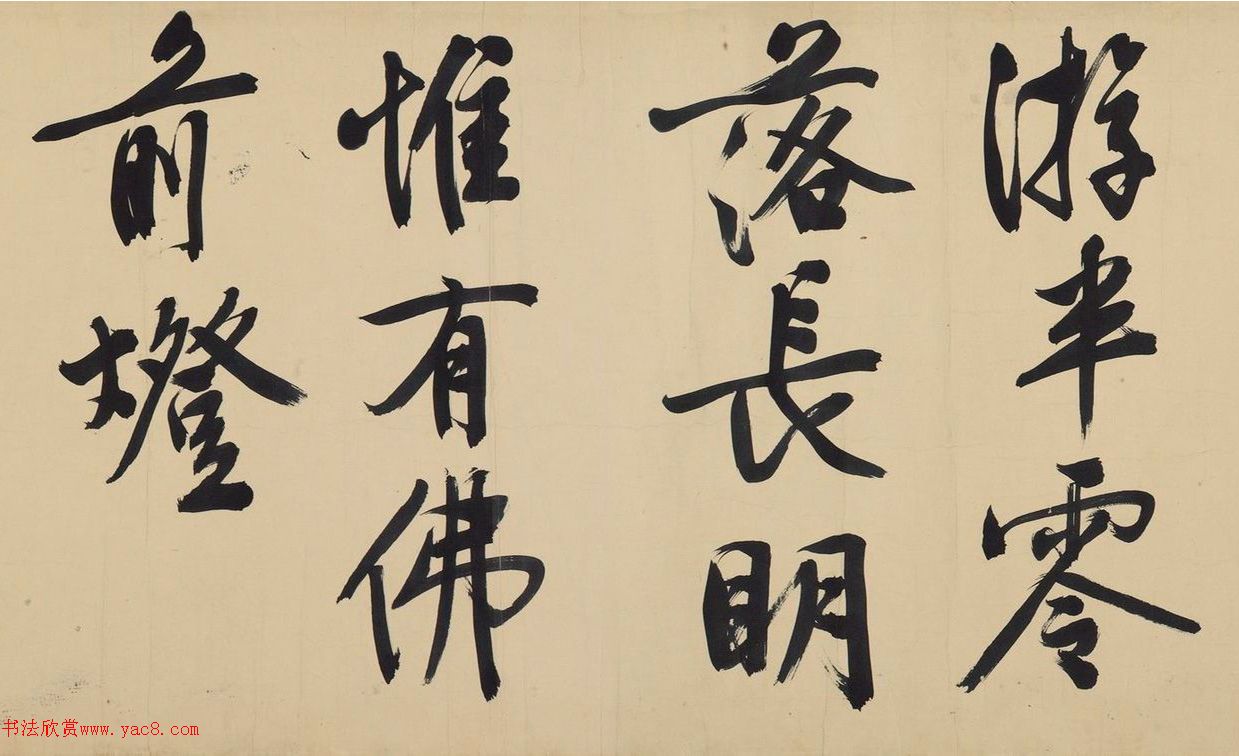 游半零
落長明
惟有佛
前燈
书法欣赏www.yac8.com